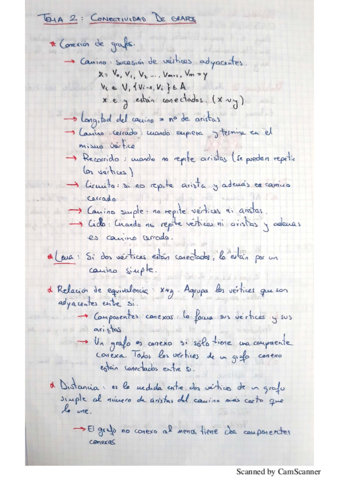 TEMA 2: CONECTIVIDAD DE GRAFOS
* Conexión de grafos
→ Camino: sucesión de vértices adyacentes.
x = V0, V1, V2 ... Vm-1, Vm = y
Vi ∈ V, {Vi-1, Vi} ∈ A
x e y están conectados. (x ~ y)
→ Longitud del camino = nº de aristas
→ Camino cerrado: cuando empieza y termina en el
mismo vértice
→ Recorrido: cuando no repite aristas (se pueden repetir
los vértices)
→ Circuito: si no repite arista y además es camino
cerrado.
→ Camino simple: no repite vértices ni aristas.
→ Ciclo: Cuando no repite vértices ni aristas y además
es camino cerrado.
* Lema: Si dos vértices están conectados, lo están por un
camino simple.
* Relación de equivalencia: x~y. Agrupa los vértices que son
adyacentes entre sí.
→ Componentes conexas: la forma sus vértices y sus
aristas
→ Un grafo es conexo si sólo tiene una componente
conexa. Todos los vértices de un grafo conexo
están conectados entre sí.
* Distancia: es la medida entre dos vértices de un grafo
simple al número de aristas del camino más corto que
los une.
→ El grafo no conexo al menos tiene dos componentes
conexas
Scanned by CamScanner